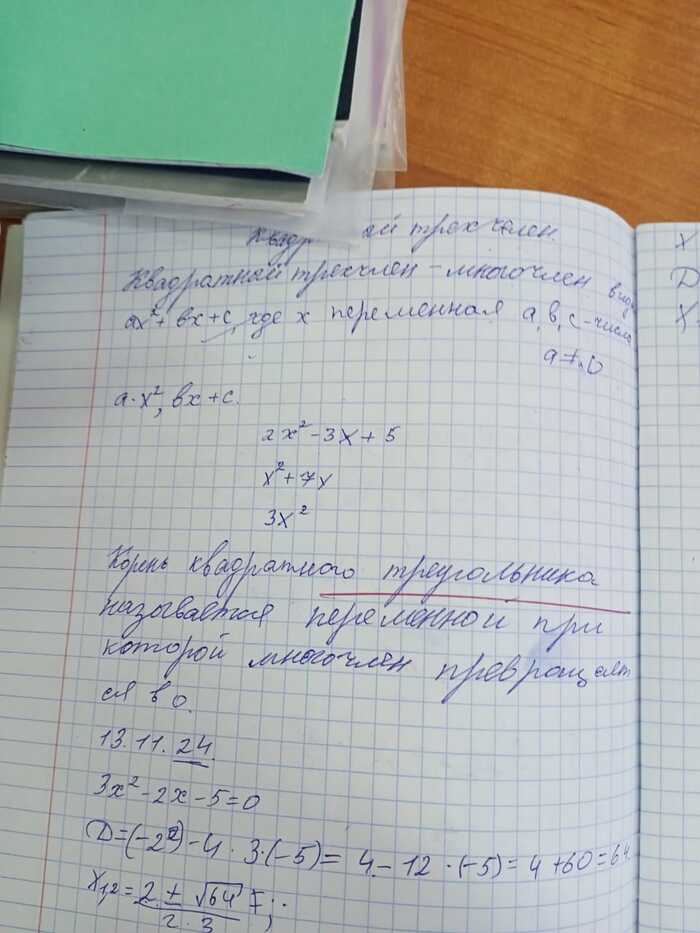 трехчлен.
Квадратной трехчлен - многочлен вида
ax²+ вx+c, где x переменная а, в, с - числа
a ≠ 0
a·x², вx+c.
2x²-3x+5
x²+7x
3x²
Корнь квадратного треугольника
называется переменной при
которой многочлен превращает
ся в 0.
13.11.24.
3x²-2x-5=0
D=(-2²)-4·3·(-5)=4-12·(-5)=4+60=64
X1,2= 2±√64
2·3
X
D
X